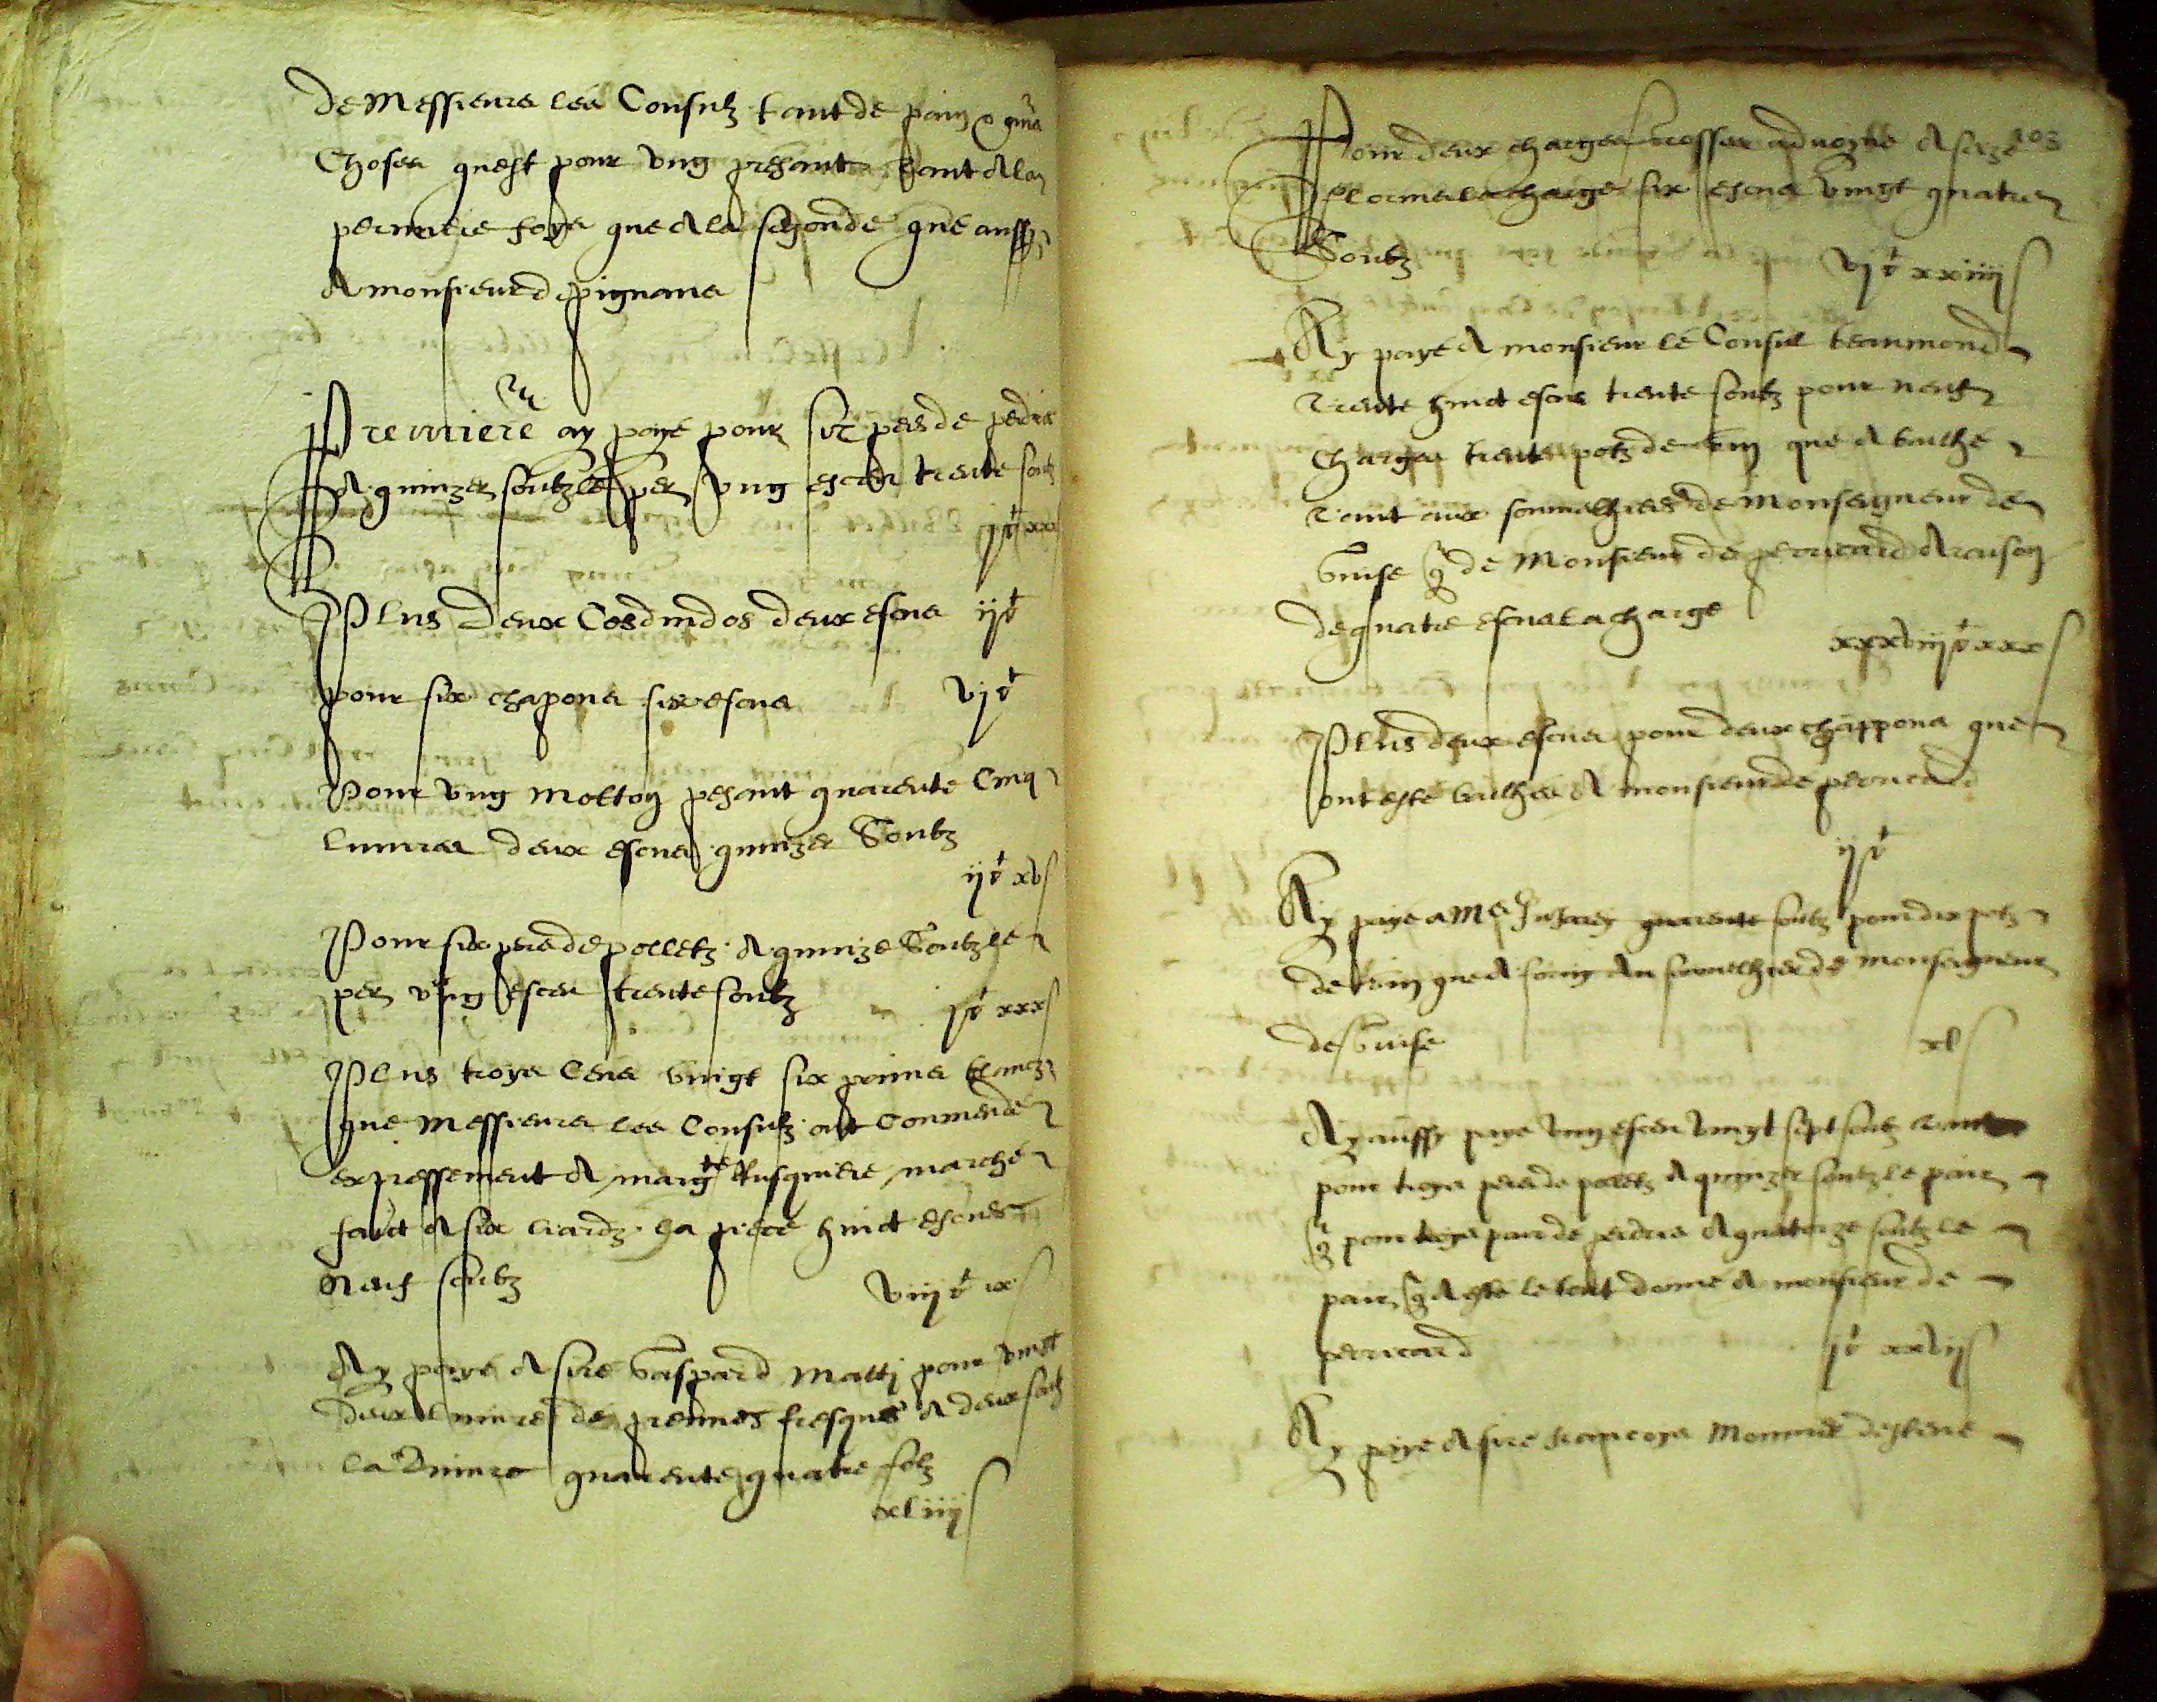 de Messieurs les Consulz tant de pain &
choses quest pour ung presant tant a la
permiere foys que a la segonde que aussy
A monsieur de pignans
Premiere ay payé pour six pers de pedris
A quinze soutz le per ung escu trente soutz
j xxx s
Plus deux Cos dindos deux escus ij
pour six chapons six escus vj
Pour ung molton pesant quarente cinq
liuvres deux escus quinze soutz
ij xv s
Pour six pers de polletz A quinze soutz le
per ung escu trente soutz j xxx s
Plus troys cens vingt six peines blancz
que Messieurs les Consulz ont Conmende
expressement A marg Rusquiere marche
faict A six liardz la piece huict escus
neuf soutz viij ix s
Ay payé A sire Gaspard Matty pour vingt
deux liuvres de prennes fresques A deux soutz
la liuvre quarente quatre solz
xliiij s
103
Pour deux charges A seze
la charge six escus vingt quatre
Soutz vj xxiiij s
Ay payé A monsieur le Consul beaumond
trente huict escus trente soutz pour neuf
charges trente potz de vin que A bailhé
tant aux sonmelhiers de Monseigneur de
Guise & de Monsieur de perricard A raison
de quatre escus la charge
xxxviij xxx s
Plus deux escus pour deux chappons que
ont esté bailhés A monsieur de perricard
ij
Ay payé a Me quarente soutz pour dix potz
de vin que A forny Au sonmelhier de monseigneur
de Guise xl s
Ay aussy paye ung escu vingt sept soutz
pour troys pers de poletz A quinze soutz le pair
& pour troys pair de perdris A quatorze soutz le
pair & A esté le tout donné A monsieur de
perricard j xxvij s
Ay payé A sire francoys Monnier